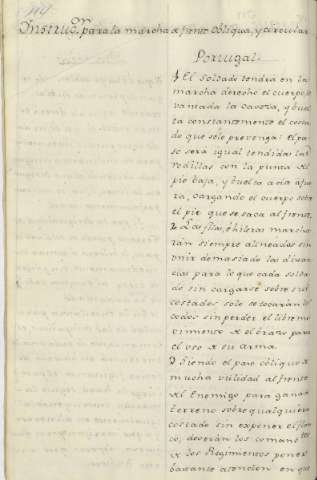 Instrucⁿ para la marcha de frente obliqua, y circular
Portugal.
1 El soldado tendrá en la
marcha derecho el cuerpo, le
vantada la caveza, y buel
ta constantemente el costa
do que sele prevenga: El pa
so será igual tendidas las
rodillas con la punta del
pie baja, y buelta acia afue
ra, cargando el cuerpo sobre
el pie que se saca al frente.
2 Las filas, è hileras marcha
rán siempre alineadas sin
unir demasiado las distan
cias para lo que cada solda
do sin cargarse sobre sus
costados solo se tocarán los
codos sin perder el libre mo
vimiento de el brazo para
el uso de su arma.
3 Siendo el paso obliquo de
mucha utilidad al frente
del Enemigo para ganar
terreno sobre qualquiera
costado sin exponer el flan
co, deverán los comand.tes
de los Regimientos poner
bastante atencion en que